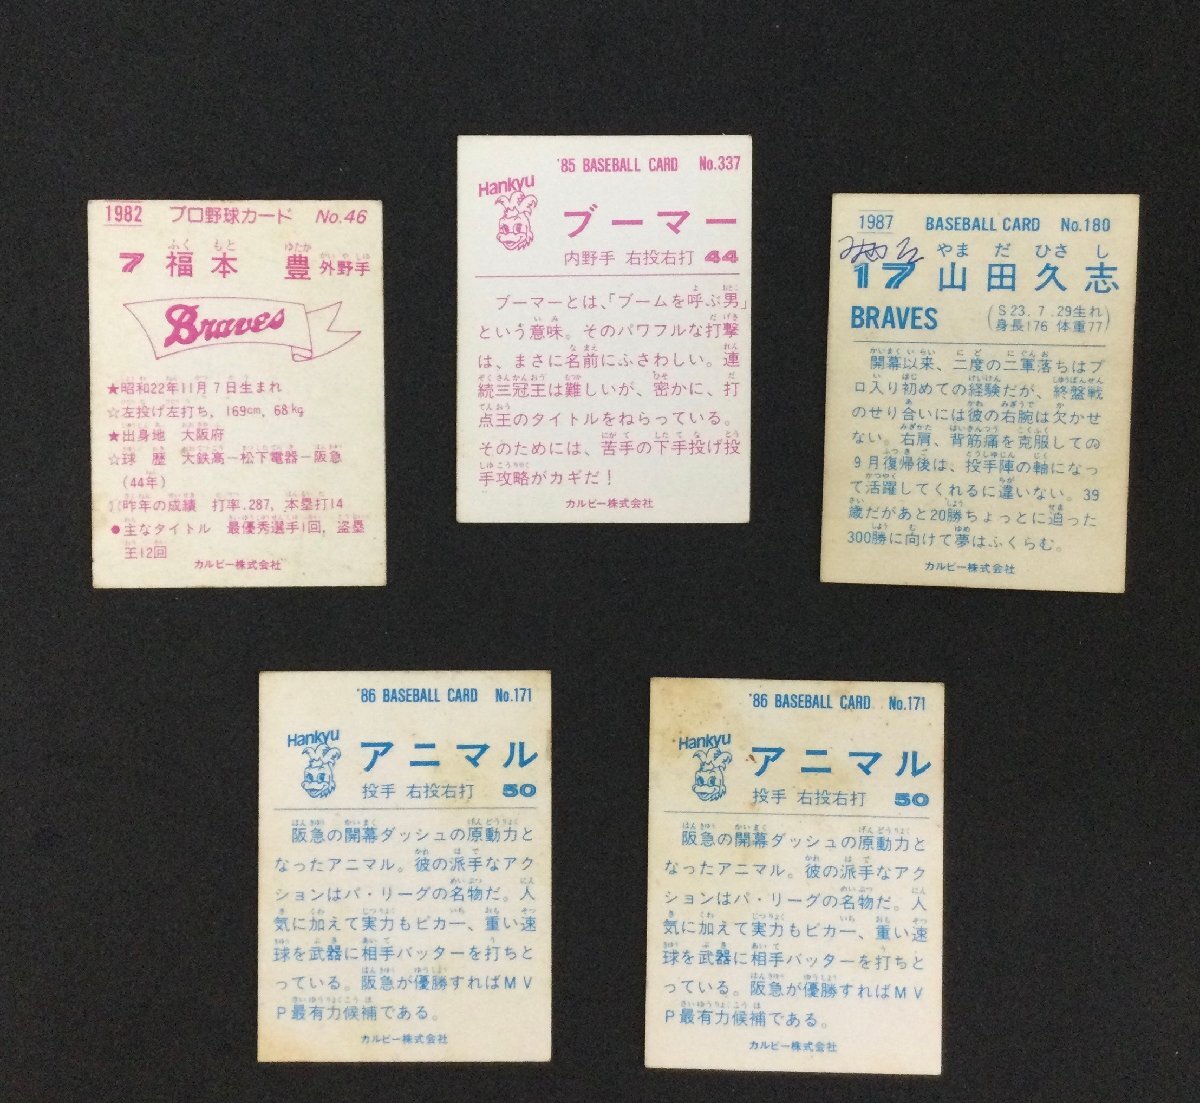 1982 プロ野球カード No.46
ふく もと ゆたか がいやしゅ
7 福本 豊 外野手
Braves
★昭和22年11月7日生まれ
☆左投げ左打ち, 169cm, 68kg
★出身地 大阪府
☆球 歴 大鉄高ー松下電器ー阪急
(44年)
☆昨年の成績 打率.287, 本塁打14
●主なタイトル 最優秀選手1回, 盗塁
王12回
カルビー株式会社
'85 BASEBALL CARD No.337
Hankyu
ブーマー
内野手 右投右打 44
ブーマーとは、「ブームを呼ぶ男」
という意味。そのパワフルな打撃
は、まさに名前にふさわしい。連
続三冠王は難しいが、密かに、打
点王のタイトルをねらっている。
そのためには、苦手の下手投げ投
手攻略がカギだ!
カルビー株式会社
1987 BASEBALL CARD No.180
やま だ ひさ し
17 山田久志
BRAVES (S23.7.29生れ
身長176 体重77)
開幕以来、二度の二軍落ちはプ
ロ入り初めての経験だが、終盤戦
のせり合いには彼の右腕は欠かせ
ない。右肩、背筋痛を克服しての
9月復帰後は、投手陣の軸になっ
て活躍してくれるに違いない。39
歳だがあと20勝ちょっとに迫った
300勝に向けて夢はふくらむ。
カルビー株式会社
'86 BASEBALL CARD No.171
Hankyu
アニマル
投手 右投右打 50
阪急の開幕ダッシュの原動力と
なったアニマル。彼の派手なアク
ションはパ・リーグの名物だ。人
気に加えて実力もピカ一、重い速
球を武器に相手バッターを打ちと
っている。阪急が優勝すればMV
P最有力候補である。
カルビー株式会社
'86 BASEBALL CARD No.171
Hankyu
アニマル
投手 右投右打 50
阪急の開幕ダッシュの原動力と
なったアニマル。彼の派手なアク
ションはパ・リーグの名物だ。人
気に加えて実力もピカ一、重い速
球を武器に相手バッターを打ちと
っている。阪急が優勝すればMV
P最有力候補である。
カルビー株式会社